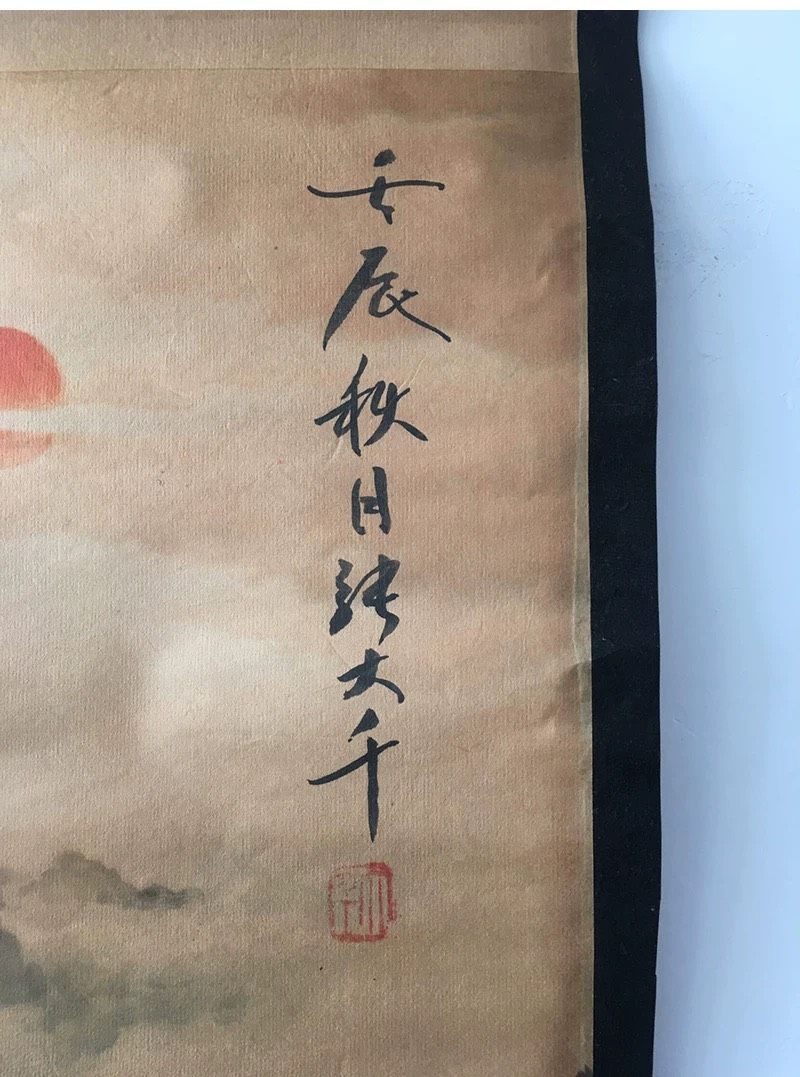 壬辰秋月張大千